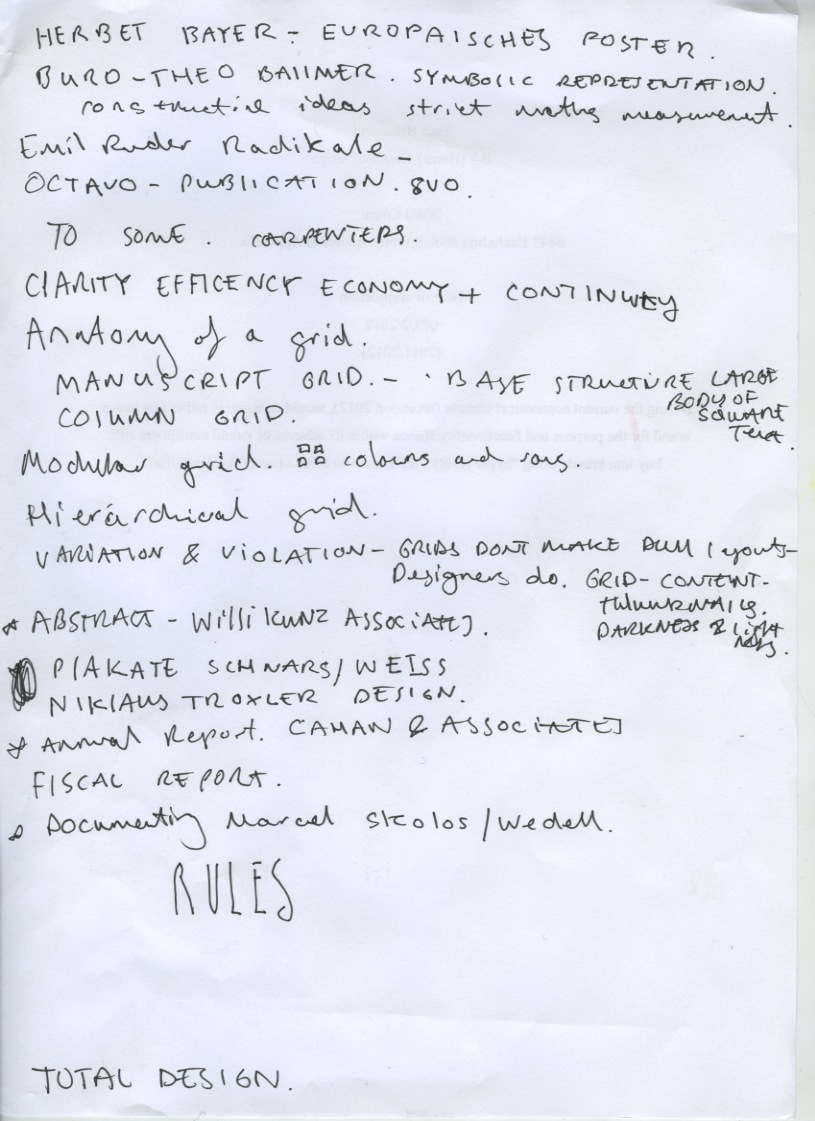 HERBET BAYER - EUROPAISCHES POSTER.
BURO - THEO BALLMER. SYMBOLIC REPRESENTATION.
constructive ideas strict maths measurement.
Emil Ruder Radikale -
OCTAVO - PUBLICATION. 8VO.
TO SOME. CARPENTERS.
CLARITY EFFICENCY ECONOMY + CONTINUITY
Anatomy of a grid.
MANUSCRIPT GRID. - BASE STRUCTURE LARGE
BODY OF
COLUMN GRID
Text.
Modular grid. colours and rows.
Hierarchical grid.
VARIATION & VIOLATION - GRIDS DONT MAKE DULL layouts -
Designers do. GRID - CONTENT -
thumbnails.
ABSTRACT - Willi KUNZ ASSOCIATES.
DARKNESS & light
PLAKATE SCHNARS/WEISS
NIKLAUS TROXLER DESIGN.
Annual Report. CAHAN & ASSOCIATES
FISCAL REPORT.
Documenting Marcel Skolos/Wedell.
RULES
TOTAL DESIGN.